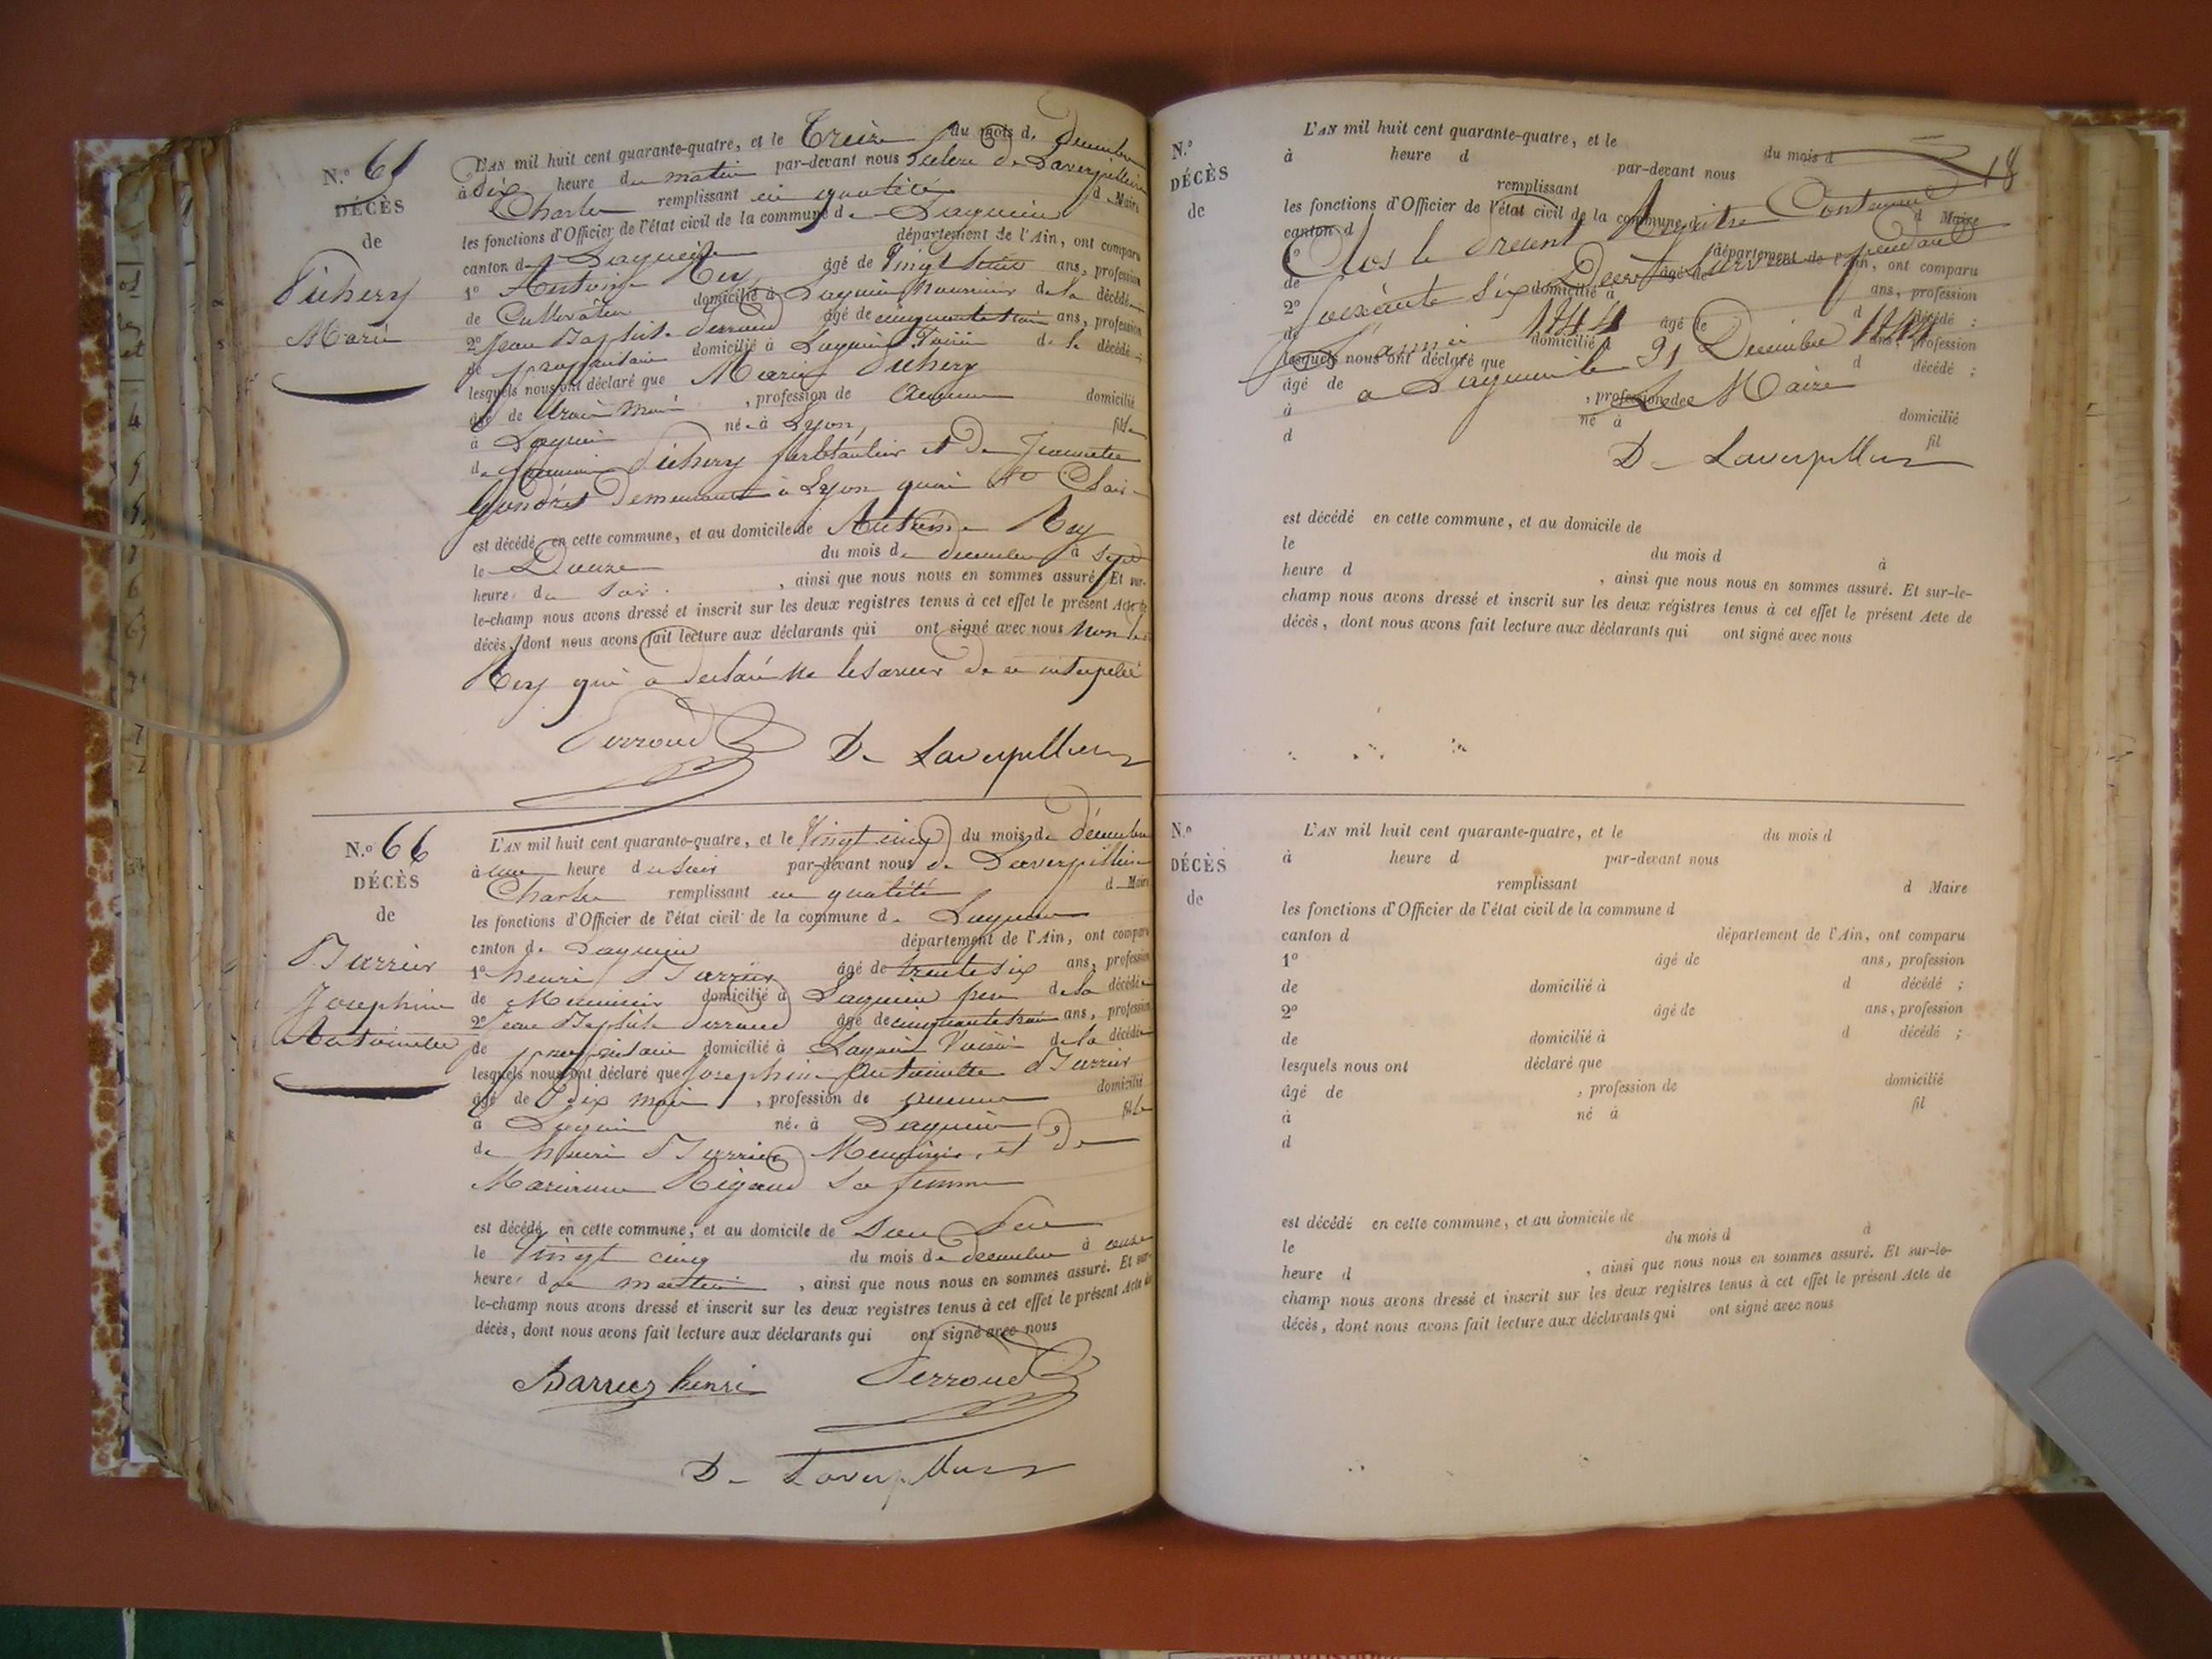 N.° 65
DÉCÈS
de
Pichery
Marie
L'AN mil huit cent quarante-quatre, et le Treize du mois de décembre
à dix heure du matin par-devant nous de Laverpilliere
Charles remplissant en qualité d Maire
les fonctions d'Officier de l'état civil de la commune de Lagnieu
canton de Lagnieu département de l'Ain, ont comparu
1° Antoine Rey âgé de Vingt ans, profession
de Cultivateur domicilié à Lagnieu nourricier de la décédée
2° Jean Baptiste Perroud âgé de cinquante trois ans, profession
de propriétaire domicilié à Lagnieu Voisin de la décédée ;
lesquels nous ont déclaré que Marie Pichery
âgé de trois mois , profession de aucune domicilié
à Lagnieu née à Lyon, fille
de Pichery et de Jeannette
demeurant à Lyon quai St Clair
est décédé en cette commune, et au domicile de Antoine Rey
le Douze du mois de décembre à sept
heure du soir , ainsi que nous nous en sommes assuré. Et sur-
le-champ nous avons dressé et inscrit sur les deux registres tenus à cet effet le présent Acte de
décès, dont nous avons fait lecture aux déclarants qui ont signé avec nous non le
Rey qui a déclaré ne le savoir de ce interpellé
Perroud De Laverpilliere
N.° 66
DÉCÈS
de
Barrier
Josephine
Antoinette
L'AN mil huit cent quarante-quatre, et le Vingt cinq du mois de décembre
à une heure du soir par-devant nous de Laverpilliere
Charles remplissant en qualité d Maire
les fonctions d'Officier de l'état civil de la commune de Lagnieu
canton de Lagnieu département de l'Ain, ont comparu
1° henri Barrier âgé de trente six ans, profession
de Menuisier domicilié à Lagnieu père de la décédée
2° Jean Baptiste Perroud âgé de cinquante trois ans, profession
de propriétaire domicilié à Lagnieu Voisin de la décédée
lesquels nous ont déclaré que Josephine Antoinette Barrier
âgé de dix mois , profession de aucune domicilié
à Lagnieu née à Lagnieu fille
de henri Barrier Menuisier, et de
Marianne Rigaud sa femme
est décédé en cette commune, et au domicile de son père
le Vingt cinq du mois de décembre à onze
heure du matin , ainsi que nous nous en sommes assuré. Et sur-
le-champ nous avons dressé et inscrit sur les deux registres tenus à cet effet le présent Acte de
décès, dont nous avons fait lecture aux déclarants qui ont signé avec nous
Barrier henri Perroud
De Laverpilliere
N.°
DÉCÈS
de
L'AN mil huit cent quarante-quatre, et le du mois d
à heure d par-devant nous
remplissant d Maire
les fonctions d'Officier de l'état civil de la commune d
canton d département de l'Ain, ont comparu
Clos le présent Registre Contenant
1° âgé de ans, profession
Soixante six Décès survenus pendant
de domicilié à d décédé ;
2° âgé de ans, profession
l'année 1844
de domicilié à d décédé ;
lesquels nous ont déclaré que
a Lagnieu le 31 Decembre 1844
âgé de , profession de domicilié
Le Maire
à né à fil
d
De Laverpilliere
est décédé en cette commune, et au domicile de
le du mois d à
heure d , ainsi que nous nous en sommes assuré. Et sur-le-
champ nous avons dressé et inscrit sur les deux registres tenus à cet effet le présent Acte de
décès, dont nous avons fait lecture aux déclarants qui ont signé avec nous
N.°
DÉCÈS
de
L'AN mil huit cent quarante-quatre, et le du mois d
à heure d par-devant nous
remplissant d Maire
les fonctions d'Officier de l'état civil de la commune d
canton d département de l'Ain, ont comparu
1° âgé de ans, profession
de domicilié à d décédé ;
2° âgé de ans, profession
de domicilié à d décédé ;
lesquels nous ont déclaré que
âgé de , profession de domicilié
à né à fil
d
est décédé en cette commune, et au domicile de
le du mois d à
heure d , ainsi que nous nous en sommes assuré. Et sur-le-
champ nous avons dressé et inscrit sur les deux registres tenus à cet effet le présent Acte de
décès, dont nous avons fait lecture aux déclarants qui ont signé avec nous